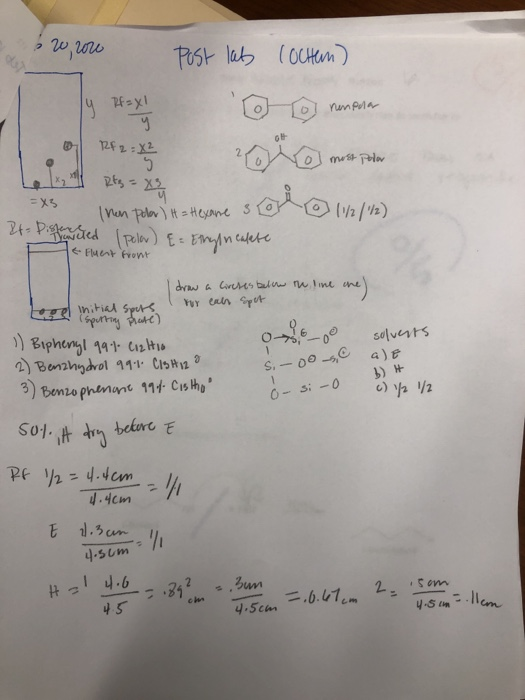 20, 2020
Post lab (OCHem)
y Rf = x1/y
1 nonpolar
Rf2 = x2/y
OH
2 most polar
x2
Rf3 = x3/y
= x3
O
3 (1/2 / 1/2)
(Non polar) H = Hexane
Rf = Distance Traveled
(polar) E =
← Eluent Front
(draw a circles below the line one)
for each spot
initial spots
(spotting plate)
1) Biphenyl 99% C12H10
2) Benzhydrol 99% C13H12O
3) Benzophenone 99% C13H10O
O
O → Si - O
Si - O
O - Si - O
solvents
a) E
b) H
c) 1/2 1/2
50% H dry before E
Rf 1/2 = 4.4cm / 4.4cm = 1/1
E 4.3cm / 4.5cm = 1/1
H = 1 4.0 / 4.5 = .89 cm
2 = .3cm / 4.5cm = .0.67cm
2 = .5cm / 4.5cm = .11cm